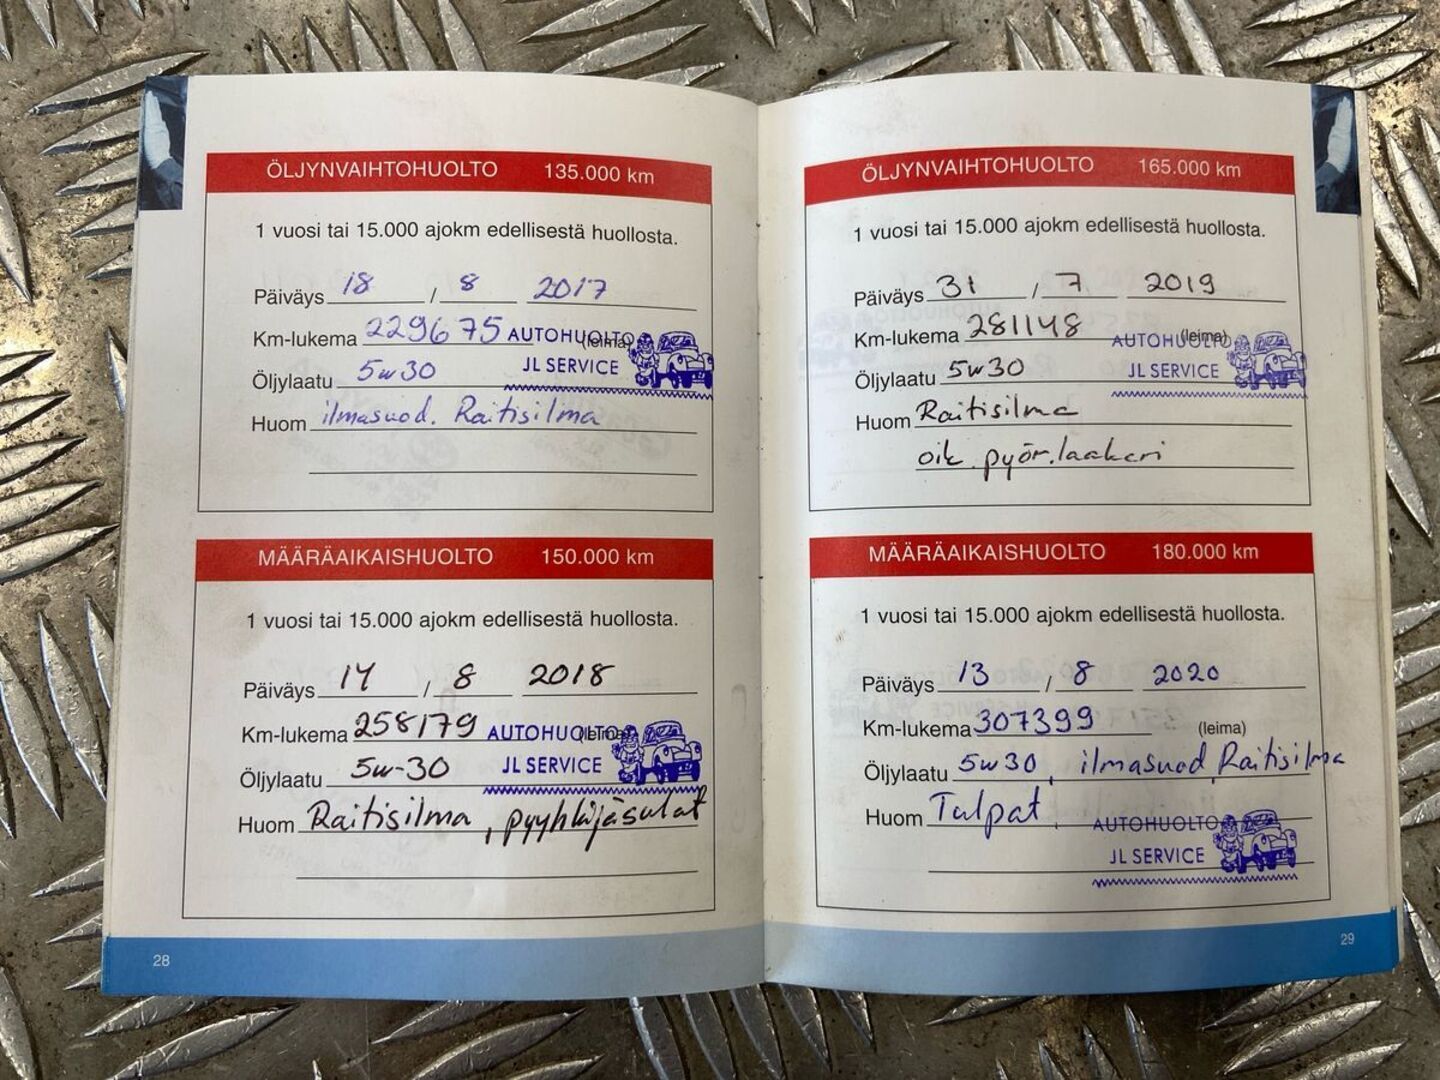 ÖLJYNVAIHTOHUOLTO 135.000 km
1 vuosi tai 15.000 ajokm edellisestä huollosta.
Päiväys 18 / 8 2017
Km-lukema 229675 AUTOHUOLTO (leima)
Öljylaatu 5w30 JL SERVICE
Huom ilmasuod. Raitisilma
MÄÄRÄAIKAISHUOLTO 150.000 km
1 vuosi tai 15.000 ajokm edellisestä huollosta.
Päiväys 14 / 8 2018
Km-lukema 258179 AUTOHUOLTO (leima)
Öljylaatu 5w-30 JL SERVICE
Huom Raitisilma, pyyhkijäsulat
28
ÖLJYNVAIHTOHUOLTO 165.000 km
1 vuosi tai 15.000 ajokm edellisestä huollosta.
Päiväys 31 / 7 2019
Km-lukema 281148 AUTOHUOLTO (leima)
Öljylaatu 5w30 JL SERVICE
Huom Raitisilma
oik. pyör.laakeri
MÄÄRÄAIKAISHUOLTO 180.000 km
1 vuosi tai 15.000 ajokm edellisestä huollosta.
Päiväys 13 / 8 2020
Km-lukema 307399 (leima)
Öljylaatu 5w30, ilmasuod, Raitisilma
Huom Tulpat,
AUTOHUOLTO
JL SERVICE
29